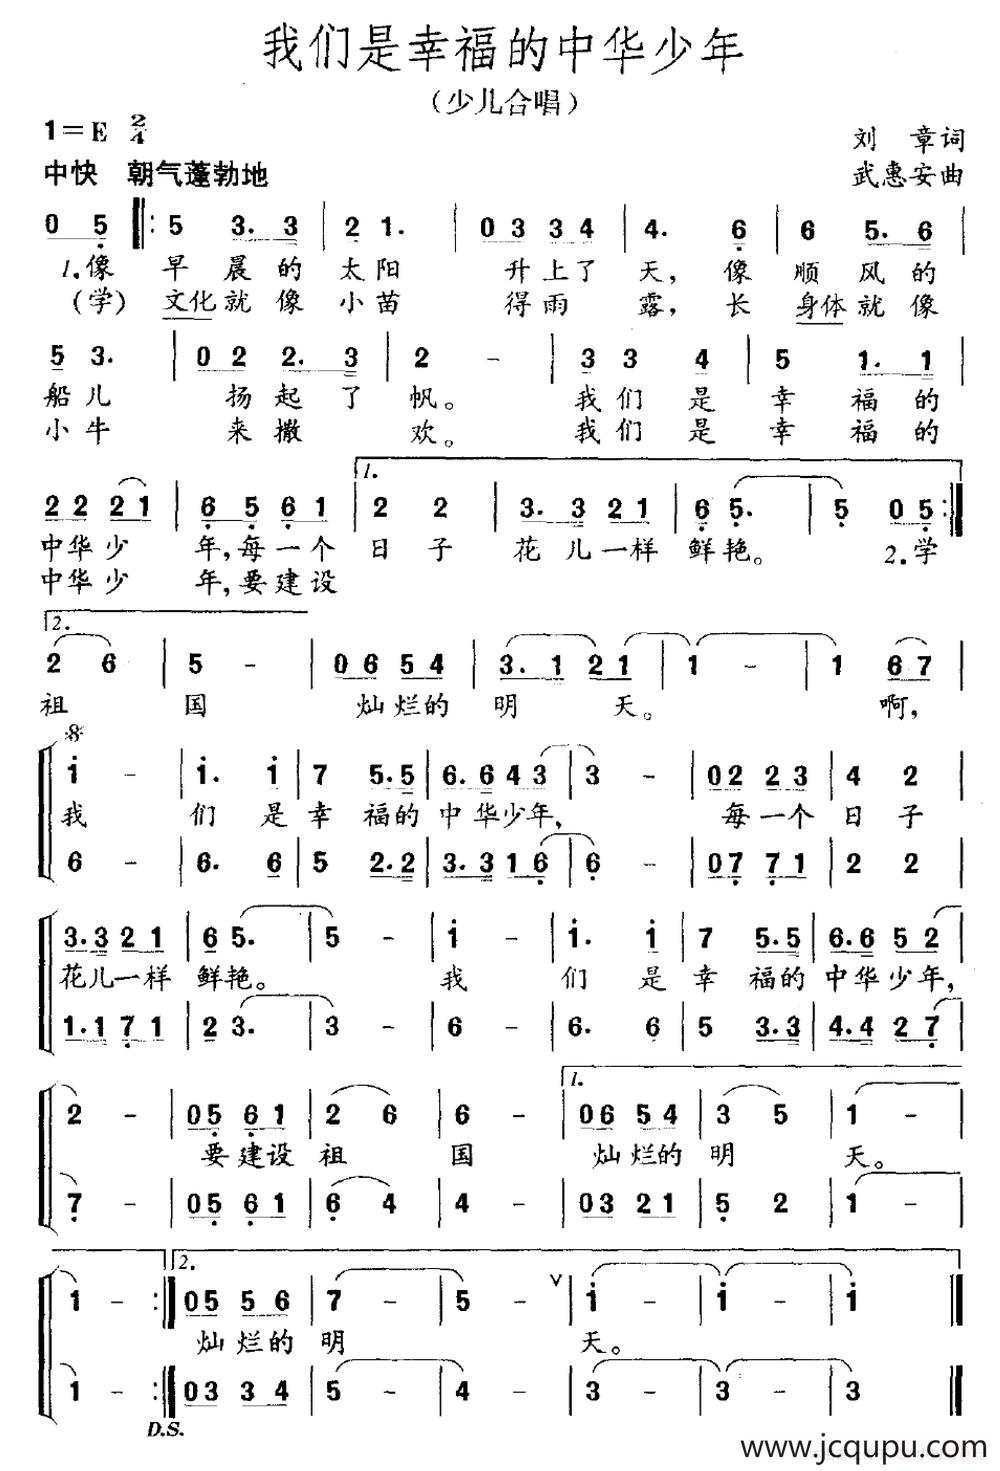 我们是幸福的中华少年
（少儿合唱）
1=E 2/4
刘 章词
中快 朝气蓬勃地
武惠安曲
0 5 ‖: 5 3. 3 | 2 1. | 0 3 3 4 | 4. 6 | 6 5. 6 |
1.像 早 晨 的 太 阳 升 上 了 天， 像 顺 风 的
(学) 文化 就 像 小 苗 得 雨 露， 长 身体 就 像
5 3. | 0 2 2. 3 | 2 - | 3 3 4 | 5 1. 1 |
船 儿 扬 起 了 帆。 我 们 是 幸 福 的
小 牛 来 撒 欢。 我 们 是 幸 福 的
1.
2 2 2 1 | 6 5 6 1 | 2 2 | 3. 3 2 1 | 6 5. | 5 0 5 :‖
中 华 少 年， 每 一 个 日 子 花 儿 一 样 鲜 艳。 2.学
中 华 少 年， 要 建 设
2.
2 6 | 5 - | 0 6 5 4 | 3. 1 2 1 | 1 - | 1 6 7 |
祖 国 灿 烂 的 明 天。 啊，
i - | i. i | 7 5. 5 | 6. 6 4 3 | 3 - | 0 2 2 3 | 4 2 |
我 们 是 幸 福 的 中 华 少 年， 每 一 个 日 子
6 - | 6. 6 | 5 2. 2 | 3. 3 1 6 | 6 - | 0 7 7 1 | 2 2 |
3. 3 2 1 | 6 5. | 5 - | i - | i. i | 7 5. 5 | 6. 6 5 2 |
花 儿 一 样 鲜 艳。 我 们 是 幸 福 的 中 华 少 年，
1. 1 7 1 | 2 3. | 3 - | 6 - | 6. 6 | 5 3. 3 | 4. 4 2 7 |
1.
2 - | 0 5 6 1 | 2 6 | 6 - | 0 6 5 4 | 3 5 | 1 - |
要 建 设 祖 国 灿 烂 的 明 天。
7 - | 0 5 6 1 | 6 4 | 4 - | 0 3 2 1 | 5 2 | 1 - |
2.
1 - :‖ 0 5 5 6 | 7 - | 5 - ∨ | i - | i - | i ‖
灿 烂 的 明 天。
1 - :‖ 0 3 3 4 | 5 - | 4 - | 3 - | 3 - | 3 ‖
D.S.
www.jcqupu.com